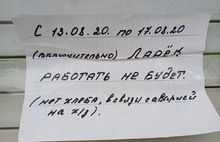 С 13.08.20. по 17.08.20
(включительно) Ларёк
работать не будет.
(нет хлеба, в связи с аварией
на х/з).